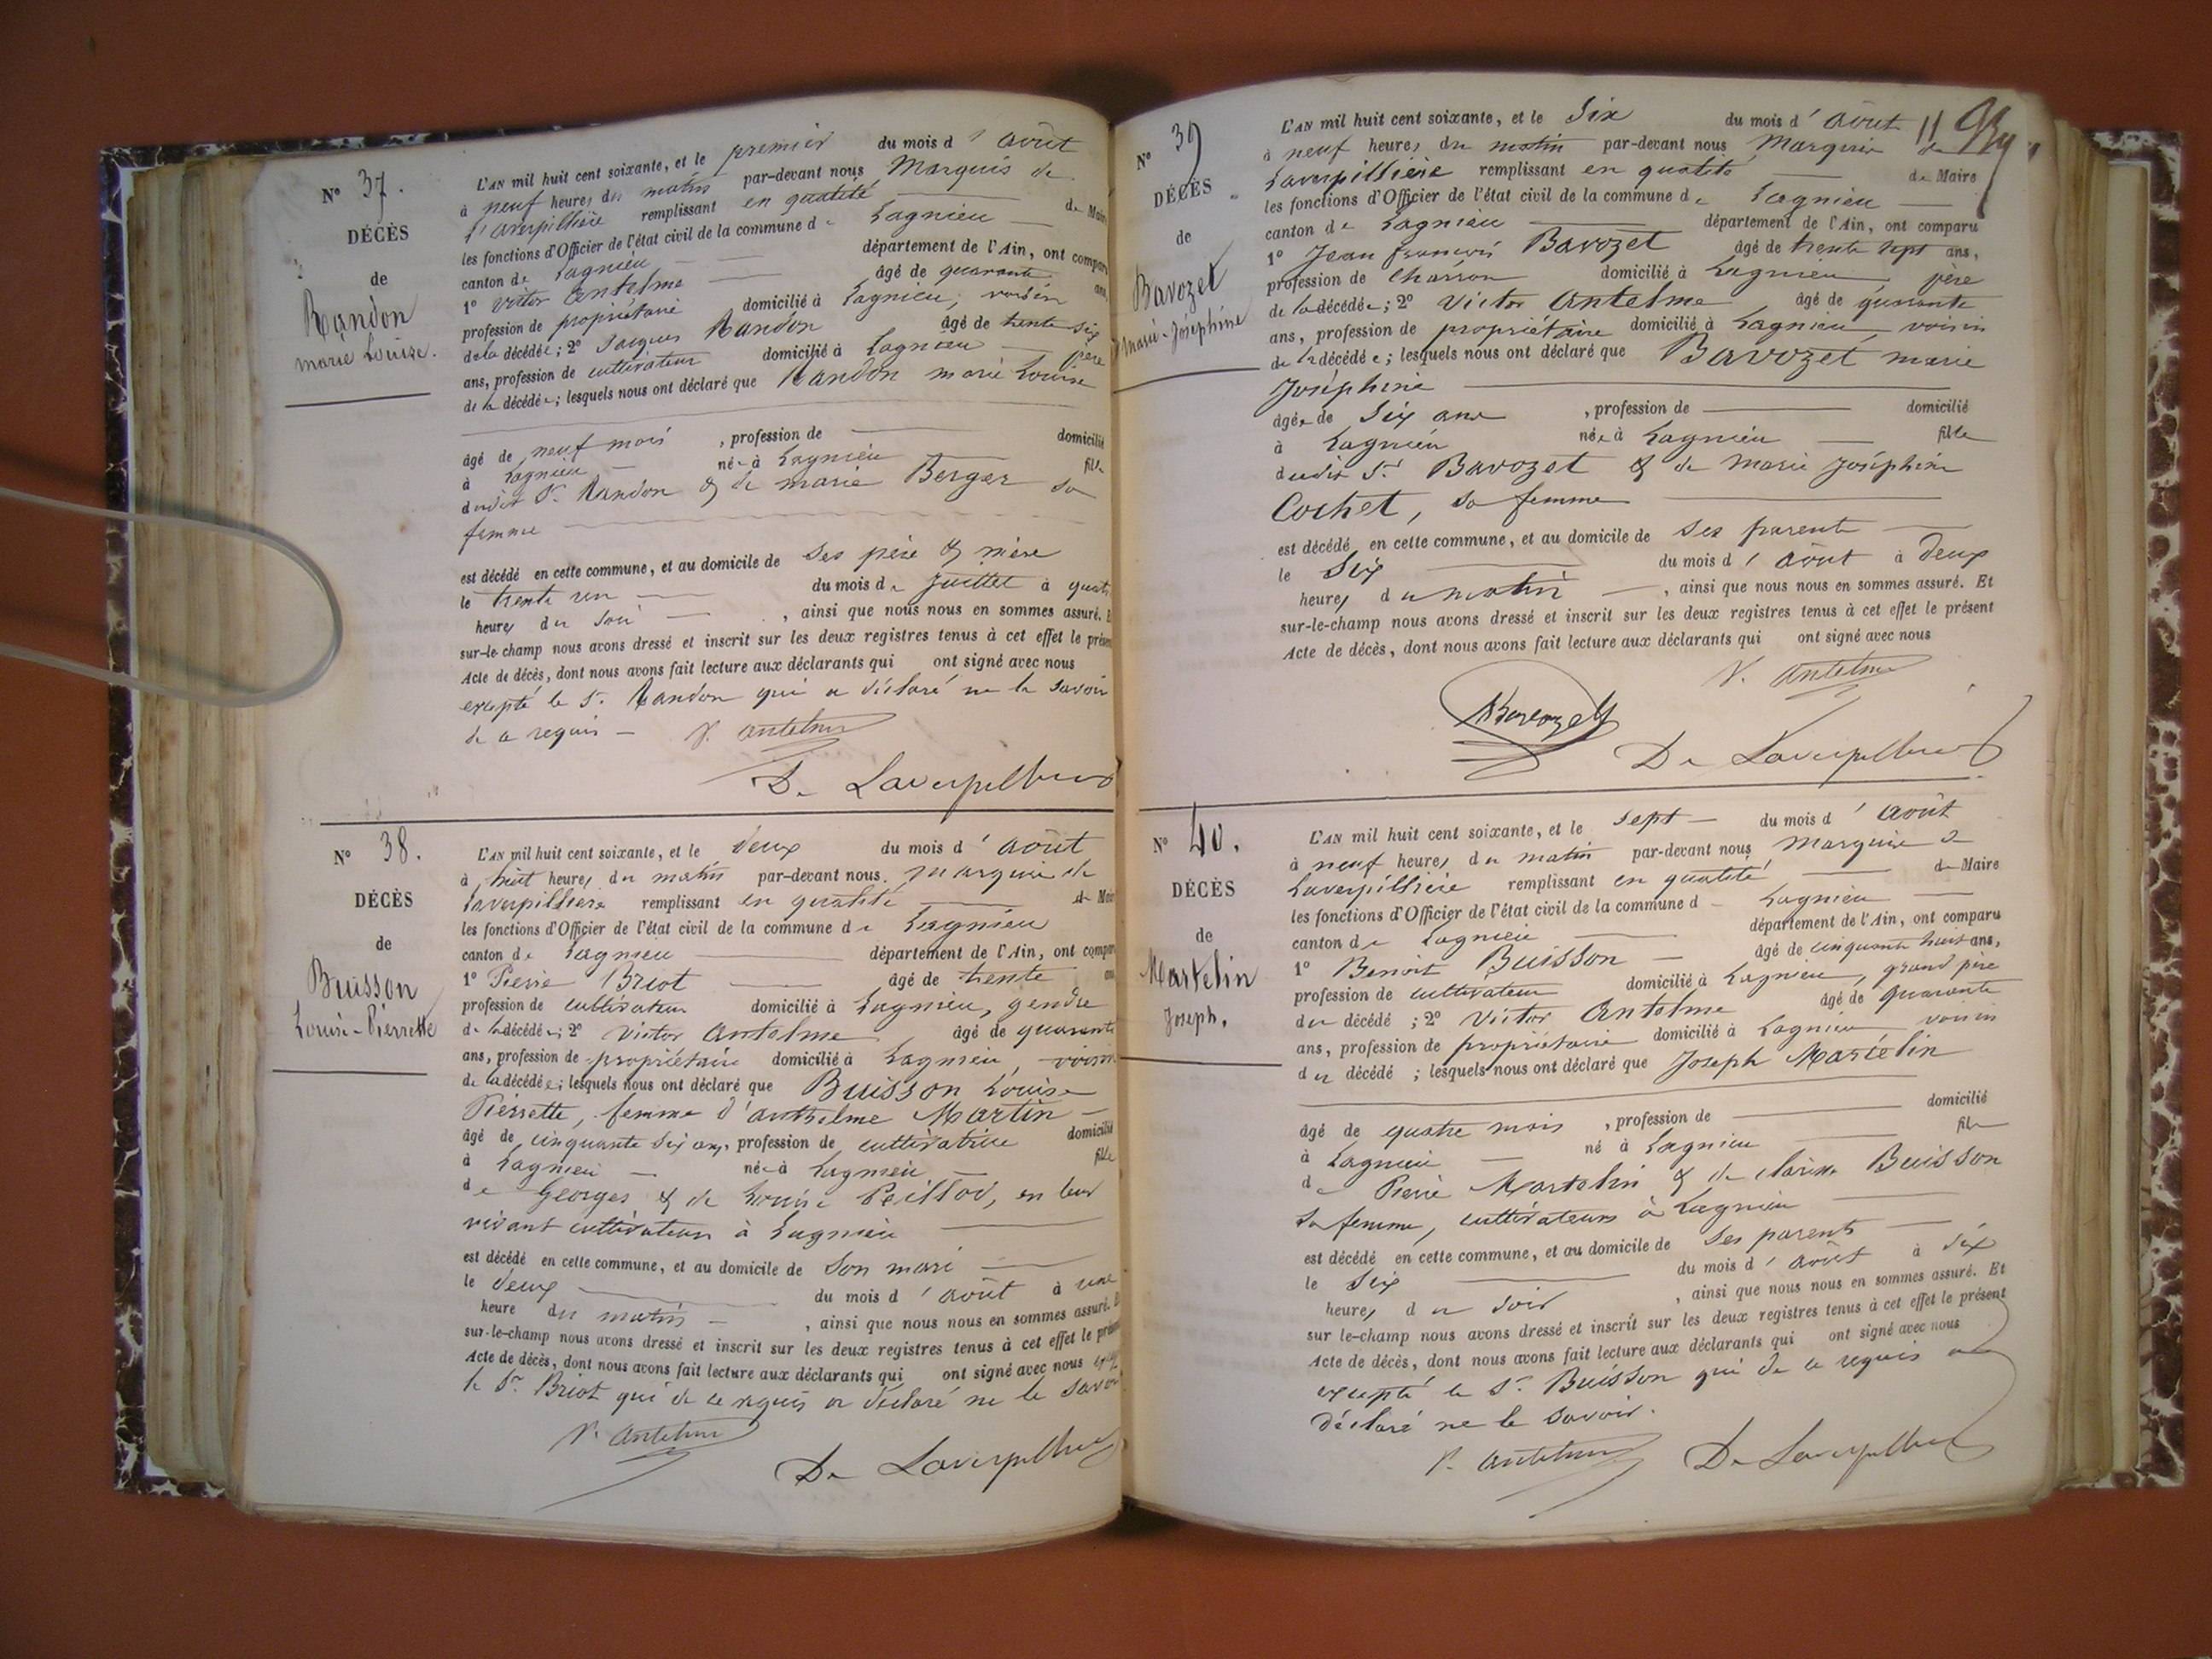 N° 37.
DÉCÈS
de
Randon
marie Louise.
L'AN mil huit cent soixante, et le premier du mois d'août
à neuf heures du matin par-devant nous Marquis de
Laverpillière remplissant en qualité de Maire
les fonctions d'Officier de l'état civil de la commune de Lagnieu
canton de Lagnieu département de l'Ain, ont comparu
1° Victor Antelme âgé de quarante ans,
profession de propriétaire domicilié à Lagnieu, voisin
de la décédée; 2° Jacques Randon âgé de trente six
ans, profession de cultivateur domicilié à Lagnieu père
de la décédée; lesquels nous ont déclaré que Randon marie Louise
âgé de neuf mois, profession de domicilié
à Lagnieu née à Lagnieu fille
dudit Sr. Randon & de marie Berger sa
femme
est décédé en cette commune, et au domicile de ses père & mère
le trente un du mois de Juillet à quatre
heures du soir, ainsi que nous nous en sommes assuré. Et
sur-le-champ nous avons dressé et inscrit sur les deux registres tenus à cet effet le présent
Acte de décès, dont nous avons fait lecture aux déclarants qui ont signé avec nous
excepté le Sr. Randon qui a déclaré ne le savoir
de ce requis V. Antelme
De Laverpillière
N° 38.
DÉCÈS
de
Buisson
Louise-Pierrette
L'AN mil huit cent soixante, et le deux du mois d'août
à huit heures du matin par-devant nous Marquis de
Laverpillière remplissant en qualité de Maire
les fonctions d'Officier de l'état civil de la commune de Lagnieu
canton de Lagnieu département de l'Ain, ont comparu
1° Pierre Briot âgé de trente ans
profession de cultivateur domicilié à Lagnieu, gendre
de la décédée; 2° Victor Antelme âgé de quarante
ans, profession de propriétaire domicilié à Lagnieu voisin
de la décédée; lesquels nous ont déclaré que Buisson Louise
Pierrette, femme d'anthelme Martin
âgé de cinquante six ans, profession de cultivatrice domicilié
à Lagnieu née à Lagnieu fille
de Georges & de Louise Peillod, en leur
vivant cultivateurs à Lagnieu
est décédé en cette commune, et au domicile de son mari
le deux du mois d'août à une
heure du matin, ainsi que nous nous en sommes assuré. Et
sur-le-champ nous avons dressé et inscrit sur les deux registres tenus à cet effet le présent
Acte de décès, dont nous avons fait lecture aux déclarants qui ont signé avec nous excepté
le Sr. Briot qui de ce requis a déclaré ne le savoir
V. Antelme
De Laverpillière
N° 39
DÉCÈS
de
Bavozet
Marie-Joséphine
L'AN mil huit cent soixante, et le Six du mois d'août
à neuf heures du matin par-devant nous Marquis de
Laverpillière remplissant en qualité de Maire
les fonctions d'Officier de l'état civil de la commune de Lagnieu
canton de Lagnieu département de l'Ain, ont comparu
1° Jean françois Bavozet âgé de trente sept ans,
profession de Charron domicilié à Lagnieu père
de la décédée; 2° Victor Antelme âgé de quarante
ans, profession de propriétaire domicilié à Lagnieu, voisin
de la décédée; lesquels nous ont déclaré que Bavozet marie
Joséphine
âgée de six ans, profession de domicilié
à Lagnieu née à Lagnieu fille
dudit Sr. Bavozet & de Marie Joséphine
Cochet, sa femme
est décédé en cette commune, et au domicile de ses parents
le Six du mois d'août à deux
heures du matin, ainsi que nous nous en sommes assuré. Et
sur-le-champ nous avons dressé et inscrit sur les deux registres tenus à cet effet le présent
Acte de décès, dont nous avons fait lecture aux déclarants qui ont signé avec nous
V. Antelme
Bavozet
De Laverpillière
N° 40.
DÉCÈS
de
Martelin
Joseph.
L'AN mil huit cent soixante, et le sept du mois d'août
à neuf heures du matin par-devant nous Marquis de
Laverpillière remplissant en qualité de Maire
les fonctions d'Officier de l'état civil de la commune d Lagnieu
canton de Lagnieu département de l'Ain, ont comparu
1° Benoit Buisson âgé de cinquante huit ans,
profession de cultivateur domicilié à Lagnieu, grand père
du décédé; 2° Victor Antelme âgé de quarante
ans, profession de propriétaire domicilié à Lagnieu voisin
du décédé; lesquels nous ont déclaré que Joseph Martelin
âgé de quatre mois, profession de domicilié
à Lagnieu né à Lagnieu fils
de Pierre Martelin & de clarisse Buisson
sa femme, cultivateurs à Lagnieu
est décédé en cette commune, et au domicile de ses parents
le Six du mois d'août à six
heures du soir, ainsi que nous nous en sommes assuré. Et
sur le-champ nous avons dressé et inscrit sur les deux registres tenus à cet effet le présent
Acte de décès, dont nous avons fait lecture aux déclarants qui ont signé avec nous
excepté le Sr. Buisson qui de ce requis a
déclaré ne le savoir.
V. Antelme De Laverpillière